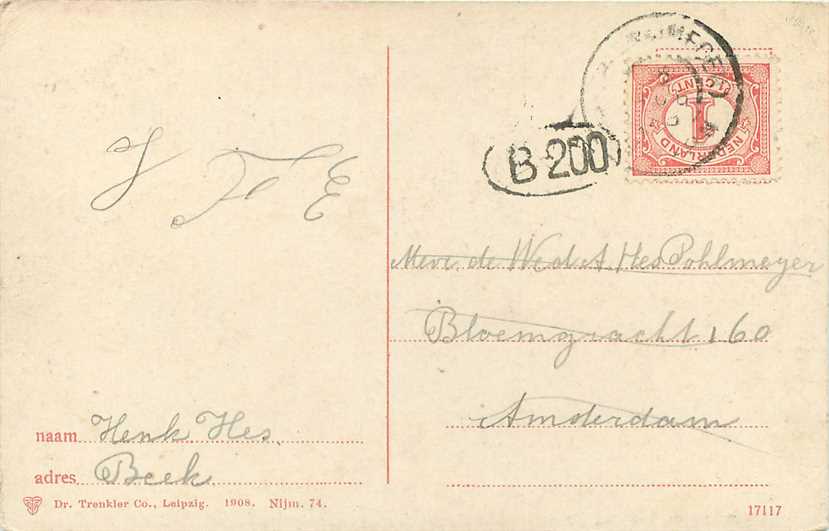 NIJMEGEN
1 CENT
1
NEDERLAND
B-200
Mevr. de Wed A. Hes Pohlmeyer
Bloemgracht 160
Amsterdam
naam Henk Hes.
adres Beek
Dr. Trenkler Co., Leipzig. 1908. Nijm. 74.
17117